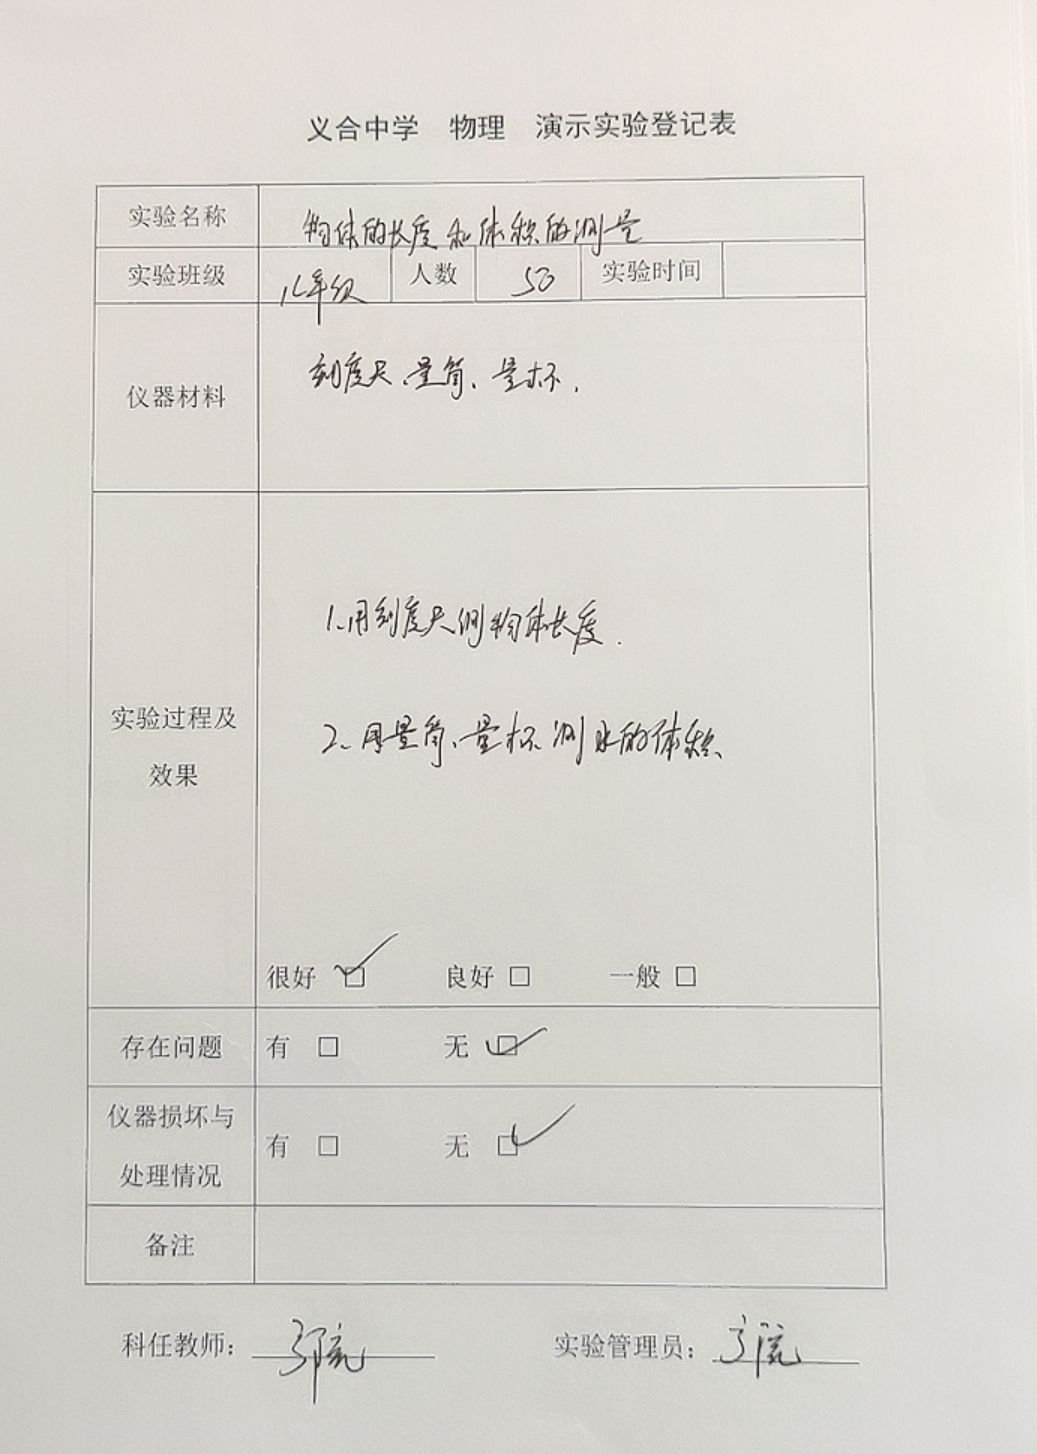 义合中学 物理 演示实验登记表
实验名称 物体的长度和体积的测量
实验班级 八年级 人数 50 实验时间
仪器材料 刻度尺、量筒、量杯.
1.用刻度尺测物体长度.
2.用量筒、量杯测水的体积
实验过程及
效果
很好 ☑ 良好 □ 一般 □
存在问题 有 □ 无 ☑
仪器损坏与
处理情况
有 □ 无 ☑
备注
科任教师:
实验管理员: